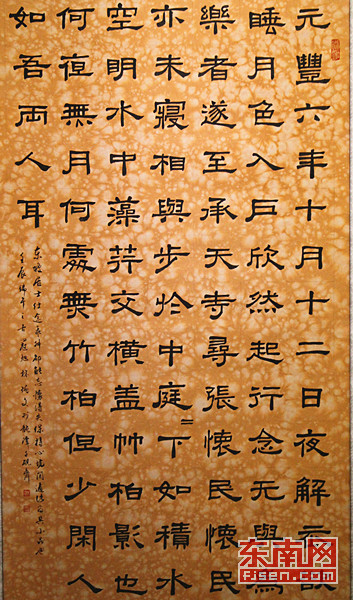 元豐六年十月十二日夜解衣欲
睡月色入戶欣然起行念无與爲
樂者遂至承天寺尋張懷民懷民
亦未寢相與步於中庭〻下如積水
空明水中藻荇交橫盖竹柏影也
何夜無月何處無竹柏但少閑人
如吾兩人耳
東坡居士
壬辰端午
东南网
fjsen.com